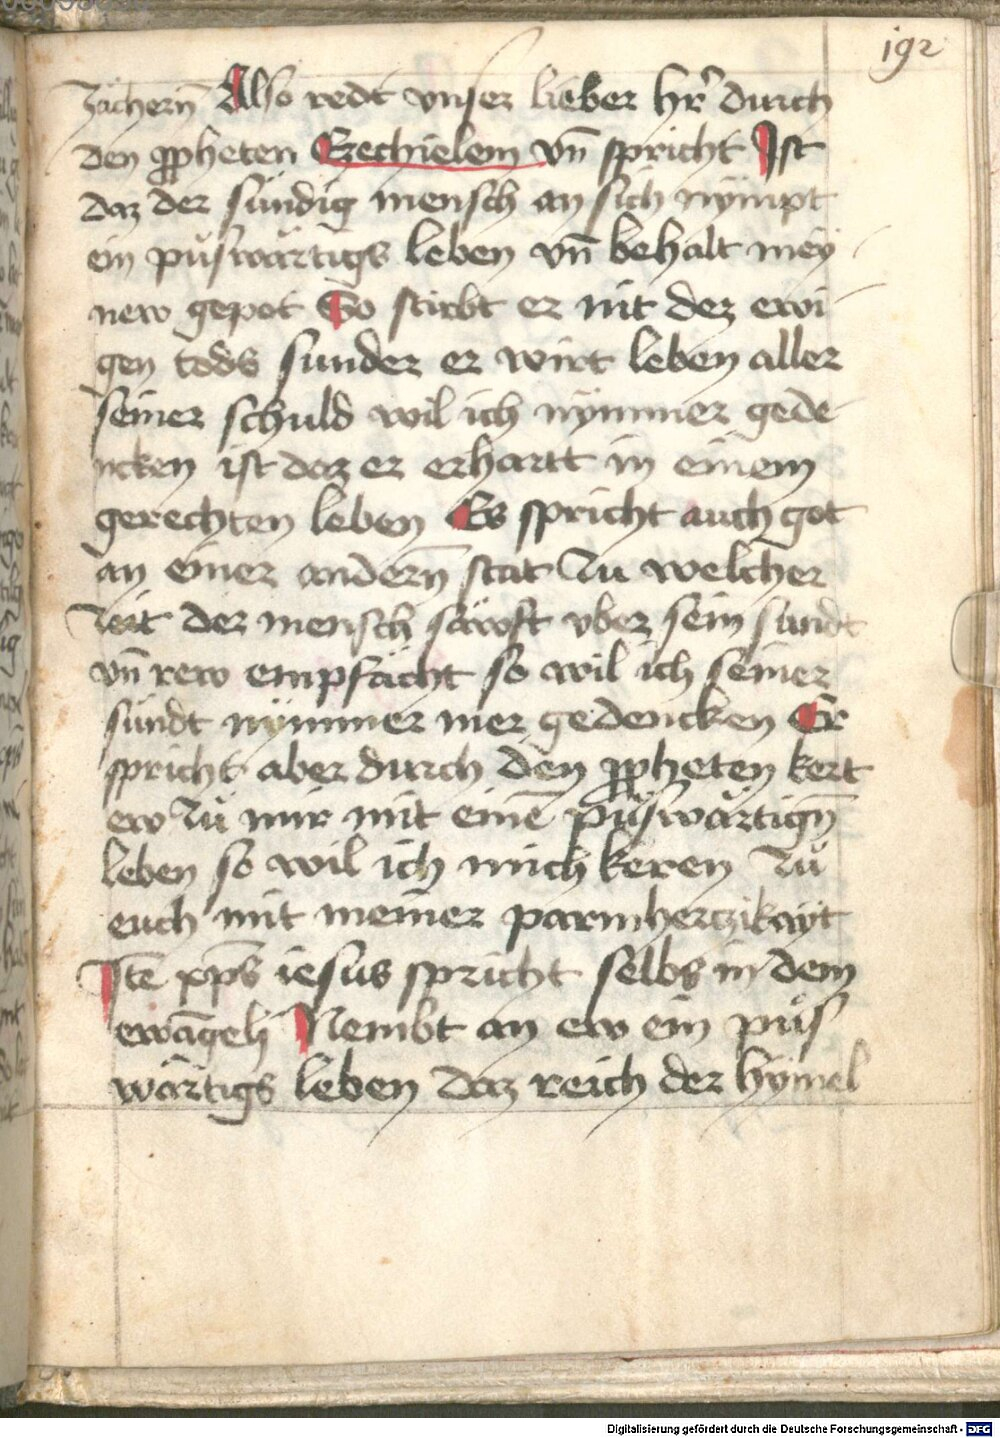 192
zächerñ Also redt vnser lieber hr̃ durch
den ꝓpheten Ezechielem vñ spricht Ist
daz der sündig mensch an sich nympt
ein půſwärtigs leben vñ behalt mey
new gepot So stirbt er nit dez ewi
gen tods sunder er wirt leben aller
seiner schuld wil ich nymmer gede
ncken ist daz er erhartt in einem
gerechten leben Es spricht auch got
an einer anderñ stat Zu welcher
zeit der mensch säwft vber sein sündt
vñ rew empfächt so wil ich seiner
sündt nymmer mer gedencken Er
spricht aber durch den ꝓpheten kert
ew zů mir mit einē půſwärtigñ
leben so wil ich mich keren zů
euch mit meiner parmherczikayt
Itē xp̄s iesus spricht selbs in dem
ewāgelj Nembt an ew ein půſ
wärtigs leben daz reich der hymel
Digitalisierung gefördert durch die Deutsche Forschungsgemeinschaft - DFG